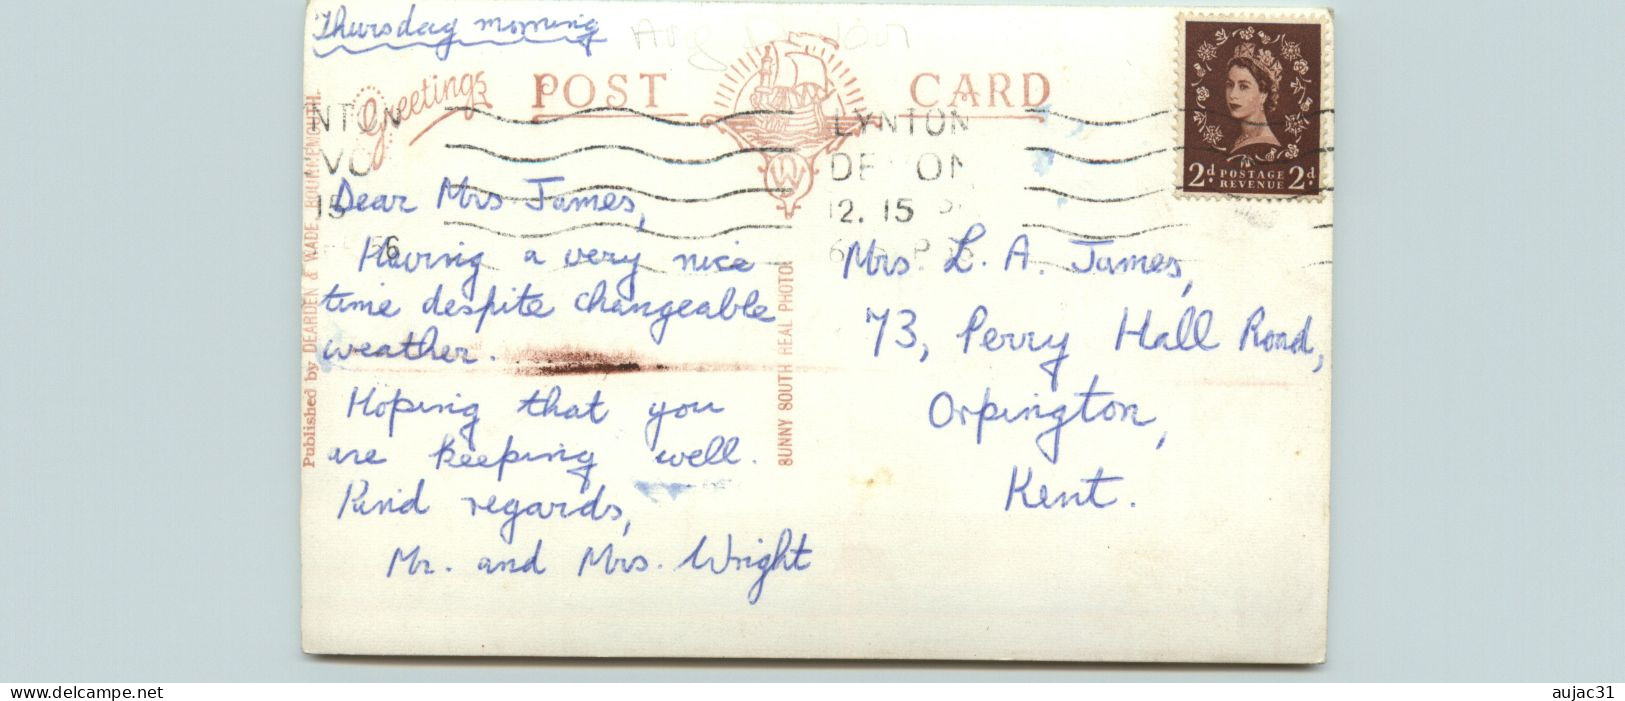 Thursday morning
Greetings
POST CARD
LYNTON
DEVON
12.15
Published by DEARDEN & WADE BOURNEMOUTH.
SUNNY SOUTH REAL PHOTO
W
2d POSTAGE REVENUE 2d
Dear Mrs James,
Having a very nice
time despite changeable
weather.
Hoping that you
are keeping well.
Kind regards,
Mr. and Mrs. Wright
Mrs. L. A. James,
73, Perry Hall Road,
Orpington,
Kent.
www.delcampe.net
aujac31